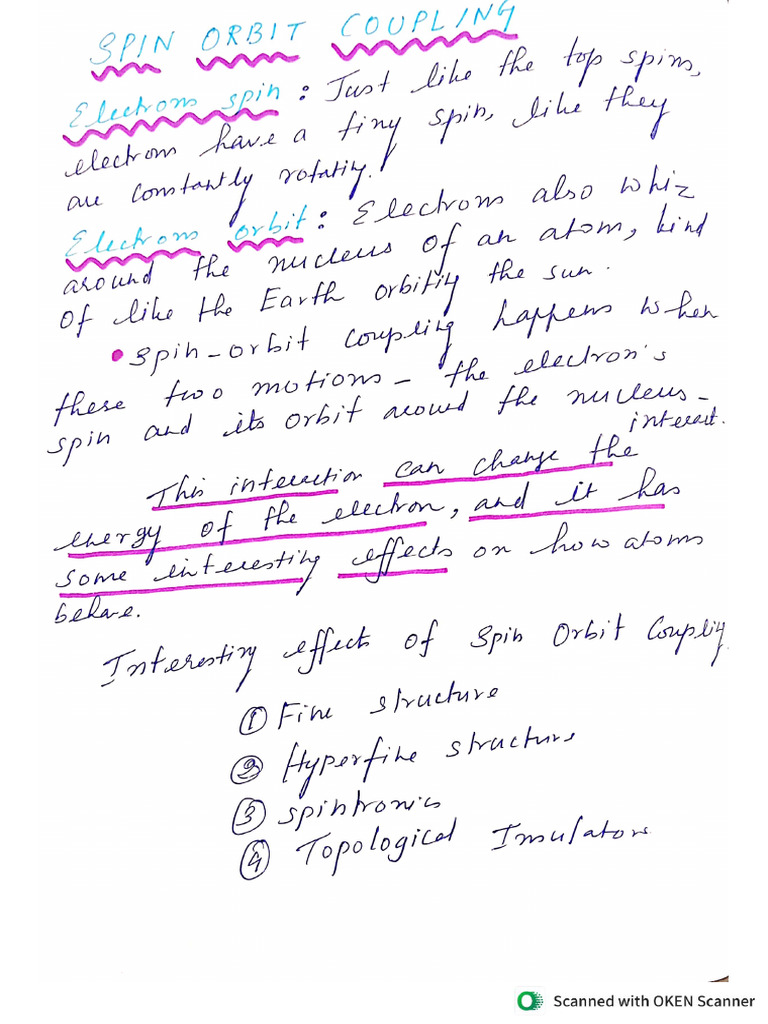 SPIN ORBIT COUPLING
Electrons spin : Just like the top spins,
electrons have a tiny spin, like they
are constantly rotating.
Electrons orbit : Electrons also whiz
around the nucleus of an atom, kind
of like the Earth orbiting the sun.
• Spin-orbit coupling happens when
these two motions - the electron's
spin and its orbit around the nucleus -
interact.
This interaction can change the
energy of the electron, and it has
some interesting effects on how atoms
behave.
Interesting effects of Spin Orbit Coupling
① Fine structure
② Hyperfine structure
③ Spintronics
④ Topological Insulators
Scanned with OKEN Scanner